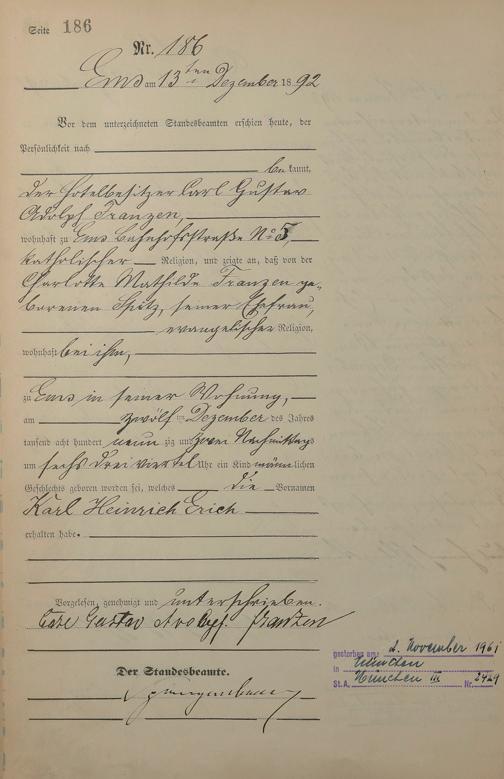 Seite 186
Nr. 186
Ems am 13ten Dezember 1892
Vor dem unterzeichneten Standesbeamten erschien heute, der
Persönlichkeit nach
bekannt,
der Hotelbesitzer Carl Gustav
Adolph Franzen,
wohnhaft zu Ems Bahnhofstraße No 5,
katholischer Religion, und zeigte an, daß von der
Charlotte Mathilde Franzen ge-
borenen Spitz, seiner Ehefrau,
evangelischer Religion,
wohnhaft bei ihm,
zu Ems in seiner Wohnung,
am zwölf ten Dezember des Jahres
tausend acht hundert neun zig und zwei Nachmittags
um sechs drei viertel Uhr ein Kind männlichen
Geschlechts geboren worden sei, welches die Vornamen
Karl Heinrich Erich
erhalten habe.
Vorgelesen, genehmigt und unterschrieben.
Carl Gustav Adolph Franzen
Der Standesbeamte.
gestorben am: 2. November 1961
in München
St.A. München III Nr. 2429